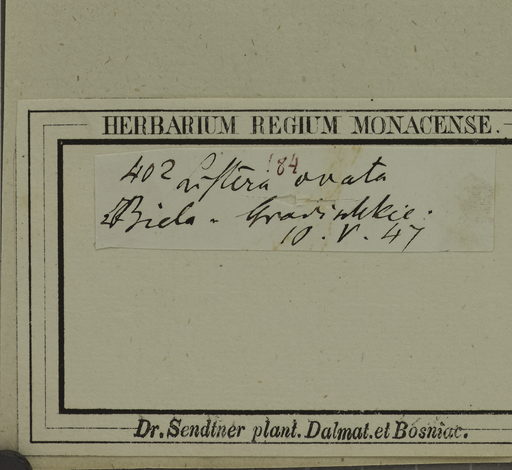 HERBARIUM REGIUM MONACENSE.
184
402 Listera ovata
Biela - Gradischkie.
10. V. 47
Dr. Sendtner plant. Dalmat. et Bosniac.